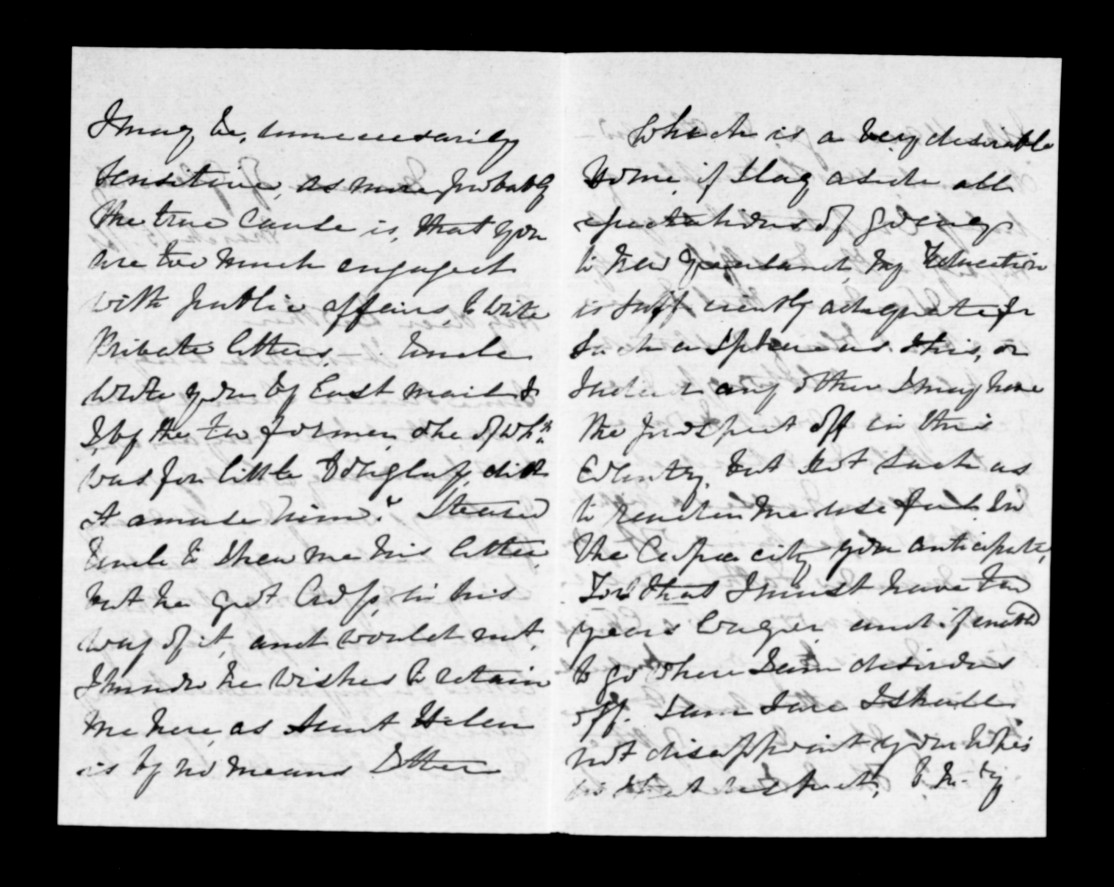 I may be, unnecessarily
sensitive, as more probably
the true cause is, that you
are too much engaged
with public affairs to write
private letters. Uncle
wrote you by last mail &
I by the two former, one of wh:ch
was for little Douglass, did
it amuse him? I teased
Uncle to shew me his letter,
but he got cross, in his
way of it, and would not,
I know he wishes to retain
me here, as Aunt Helen
is by no means Other
Which is a very desirable
home, if I lay aside all
expectations of going
to New Zealand My Education
is sufficiently adequate for
such a sphere as this, or
indeed any other I may have
the prospect off in this
Country, but not such as
to render me useful In
the Capacity you anticipate,
For that I must have two
years longer and if enabled
to go where I am desirous
off. I am sure I shall
not disappoint your hopes
in that respect,